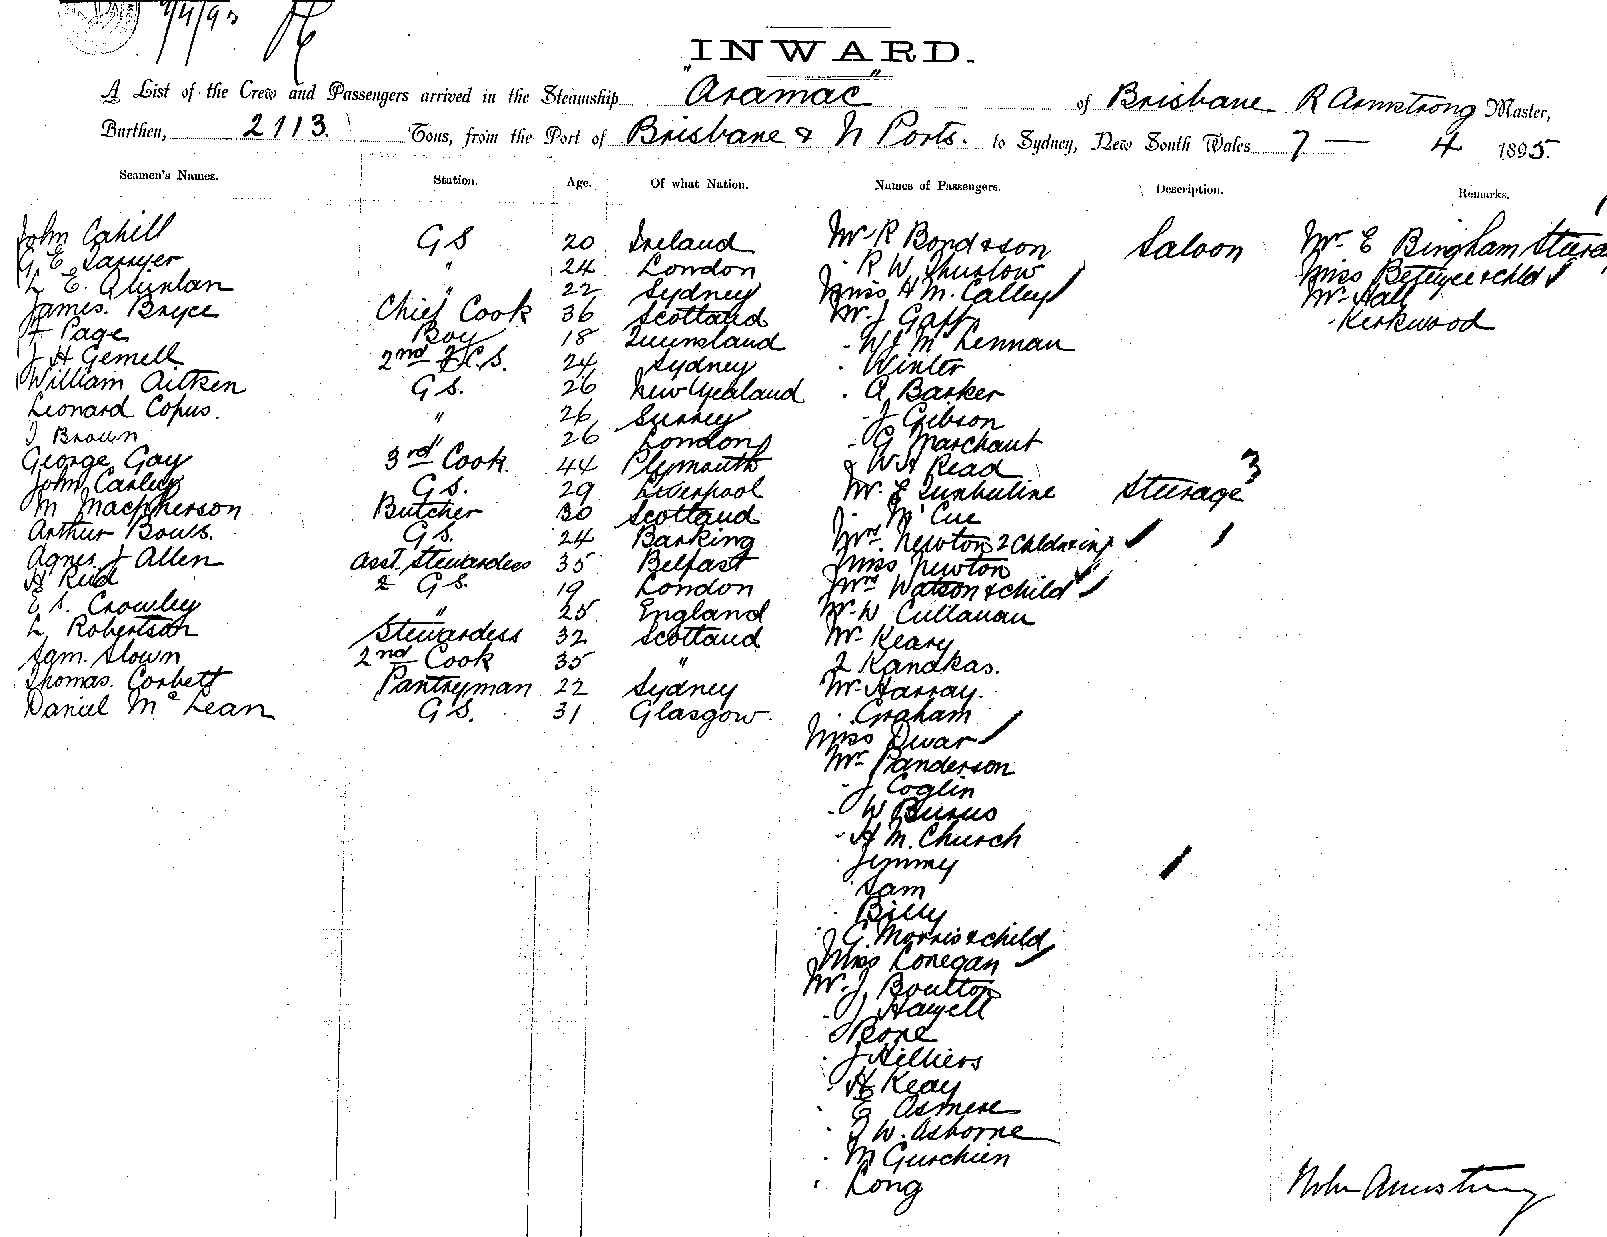 INWARD.
A List of the Crew and Passengers arrived in the Steamship "Aramac" of Brisbane R Armstrong Master,
Burthen, 2113. Tons, from the Port of Brisbane & N Ports. to Sydney, New South Wales 7 — 4 1895.
Seamen's Names. Station. Age. Of what Nation. Names of Passengers. Description. Remarks.
John Cahill G S 20 Ireland Mr R Bond & son Saloon Mr E Bingham
G E Sawyer " 24 London R W Thurlow Miss & child
L E. Quinlan " 22 Sydney Miss H M. Calley Mr Hall
James. Bryce Chief Cook 36 Scotland Mr J Kirkwood
F Page Boy 18 Queensland W J McLennan
J H Gemell 2nd 24 Sydney Winter
William Aitken G S. 26 New Zealand A Barker
Leonard Copus. " 26 Surrey J Gibson
J Brown " 26 London G Marchant
George Gay 3rd Cook. 44 Plymouth W H Read
John Carley G S. 29 Liverpool Mr E Steerage 3
M MacPherson Butcher 30 Scotland McCue
Arthur Bows. G S. 24 Barking Mrs. Newton 2 Child & inf
Agnes J Allen Asst. Stewardess 35 Belfast Miss Newton
H Reid G S. 19 London Mrs Watson & child
E S. Crowley " 25 England Mr W Cullanan
L Robertson Stewardess 32 Scotland Mr Keary
Sam. Stown 2nd Cook 35 " 2 Kanakas.
Thomas. Corbett Pantryman 22 Sydney Mr Harray.
Daniel McLean G S. 31 Glasgow. Graham
Miss Dwar
Mr Panderson
J Coglin
W Burns
H M. Church
Jimmy
Sam
Billy
G. Morris & child
Miss Lonegan
Mr. J. Boulton
J Hayell
Bone
J Hilliers
H Keay
E Asmere
J W. Osborne
M Gurchien
Long
Armstrong